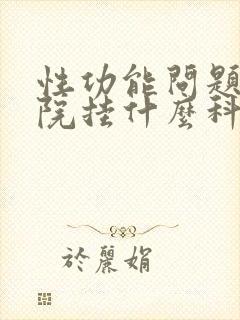 性功能問題
院挂什麼科
於麗娟